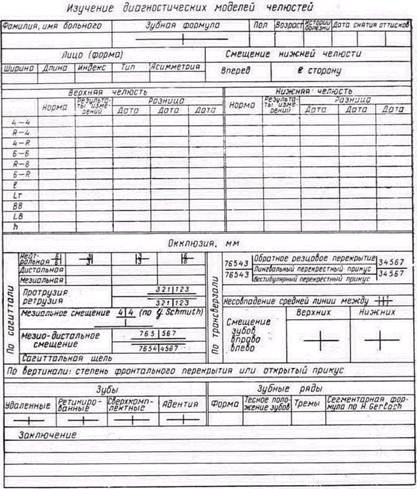 Изучение диагностических моделей челюстей
Фамилия, имя больного Зубная формула Пол Возраст История болезни Дата снятия оттисков
Лицо (форма) Смещение нижней челюсти
Ширина Длина Индекс Тип Асимметрия Вперед в сторону
Верхняя челюсть Нижняя челюсть
Норма Результаты измерений Разница Норма Результаты измерений Разница
Дата Дата Дата Дата Дата Дата
4-4
R-4
4-R
6-6
R-6
6-R
ℓ
Lт
BB
LB
h
Окклюзия, мм
По сагиттали
Нейтральная 6 3 3 6
Дистальная
Мезиальная
Протрузия 321 123
ретрузия 321 123
Мезиальное смещение 4 4 (по G. Schmuth)
Мезио-дистальное смещение 765 567
7654 4567
Сагиттальная щель
По трансверзали
76543 Обратное резцовое перекрытие 34567
76543 Лингвальный перекрестный прикус 34567
Вестибулярный перекрестный прикус
Несовпадение средней линии между
Смещение зубов вправо влево Верхних Нижних
По вертикали: степень фронтального перекрытия или открытый прикус
Зубы Зубные ряды
Удаленные Ретинированные Сверхкомплектные Адентия Форма Тесное положение зубов Тремы Сегментарная формула по H. Gerlach
Заключение